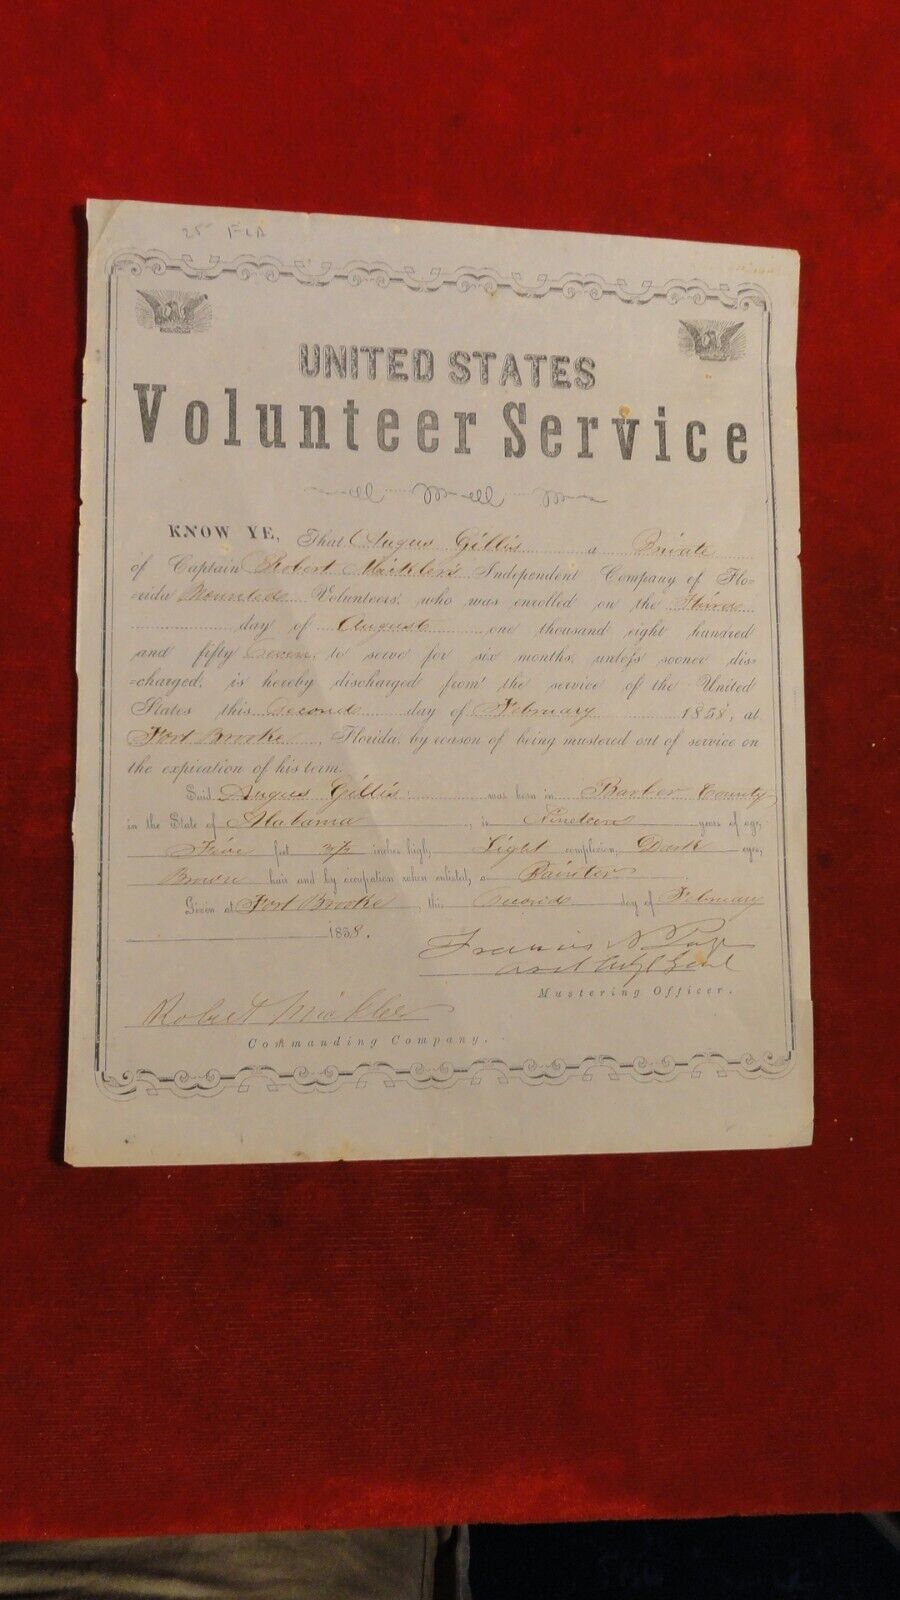 25 FLA
UNITED STATES
Volunteer Service
KNOW YE, That Angus Gillis a Private
of Captain Robert Mickler's Independent Company of Flo=
=rida Mounted Volunteers, who was enrolled on the Third
day of August one thousand eight hundred
and fifty Seven, to serve for six months, unless sooner dis=
=charged, is hereby discharged from the service of the United
States this Second day of February 1858, at
Fort Brooke, Florida, by reason of being mustered out of service on
the expiration of his term.
Said Angus Gillis was born in Barber County
in the State of Alabama, is Nineteen years of age,
Five feet inches high, Light complexion, Dark eyes,
Brown hair and by occupation when enlisted, a Painter.
Given at Fort Brooke, this Second day of February
1858.
Francis N Page
Asst Adjt Genl
Mustering Officer.
Robert Mickler
Commanding Company.